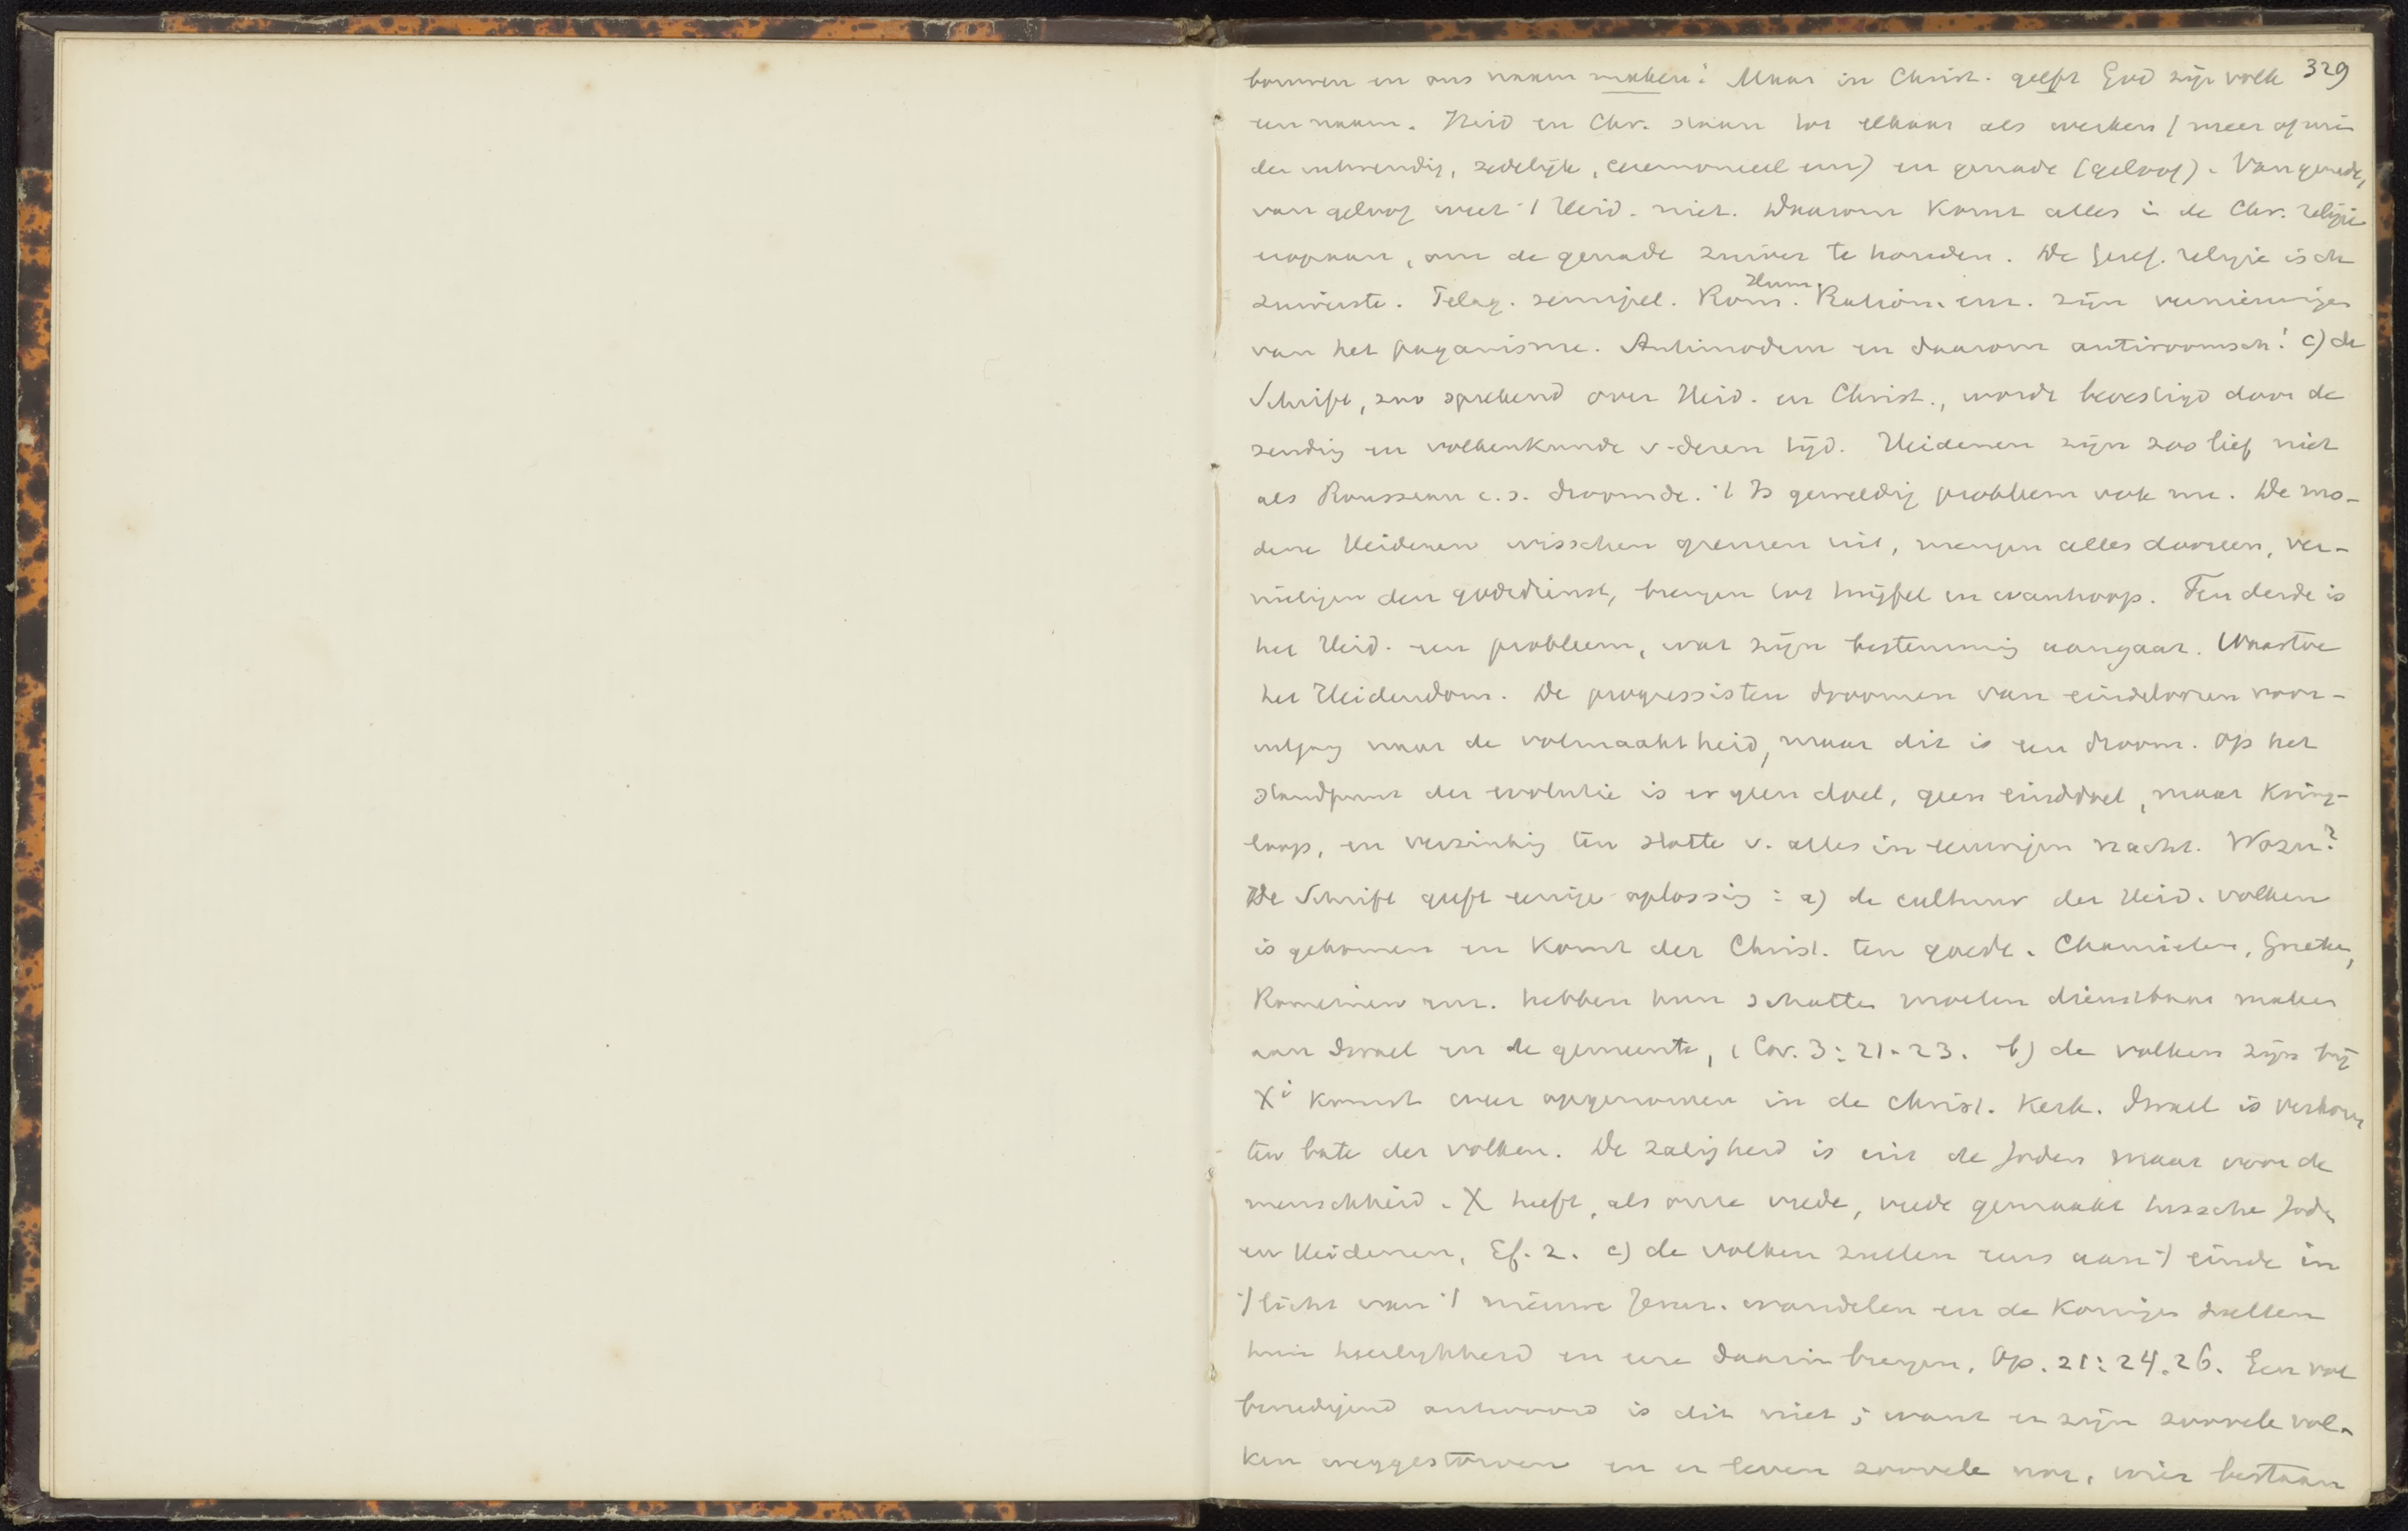 329
bouwen en ons naam maken! Maar in Christ. geeft God zijn volk
een naam. Heid en Chr. staan tot elkaar als werken (meer of min
der uitwendig, zedelijk, ceremonieel enz) en genade (geloof). Van genade,
van geloof weet 't Heid. niet. Daarom komt alles in de Chr. religie
eropaan, om de genade zuiver te houden. De Geref. religie is de
zuiverste. Pelag. semipel. Rom. Hum. Ration. enz. zijn vernieuwingen
van het paganisme. Antimodern en daarom antiroomsch! c) de
Schrift, zoo sprekend over Heid. en Christ., wordt bevestigd door de
zending en volkenkunde v. deren tijd. Heidenen zijn zoo lief niet
als Rousseau c.s. droomde. 't Is geweldig probleem ook nu. De mo-
derne Heidenen wisschen grenzen uit, mengen alles dooreen, ver-
nietigen den godsdienst, brengen tot twijfel en wanhoop. Ten derde is
het Heid. een probleem, wat zijn bestemming aangaat. Waartoe
het Heidendom. De progressisten droomen van eindeloozen voor-
uitgang naar de volmaaktheid, maar dit is een droom. Op het
standpunt der evolutie is er geen doel, geen einddoel, maar kring-
loop, en verzinking ten slotte v. alles in eeuwigen nacht. Wozu?
De Schrift geeft eenige oplossing: a) de cultuur der Heid. volken
is gekomen en komt der Christ. ten goede. Chamieten, Grieken,
Romeinen enz. hebben hun schatten moeten dienstbaar maken
aan Israel en de gemeente, 1 Cor. 3:21-23. b) de volken zijn bij
Xi komst weer opgenomen in de christ. Kerk. Israel is verkoren
ten bate der volken. De zaligheid is uit de Joden maar voor de
menschheid. X heeft, als onze vrede, vrede gemaakt tussche Joden
en Heidenen, Ef. 2. c) de volken zullen eens aan 't einde in
't licht van 't nieuwe Jeruz. wandelen en de Koningen zullen
hun heerlijkheid en eere daarin brengen. Op. 21:24.26. Een vol
bevredigend antwoord is dit niet; want er zijn zoovele vol-
ken weggestorven en er leven zoovele nog, wier bestaan